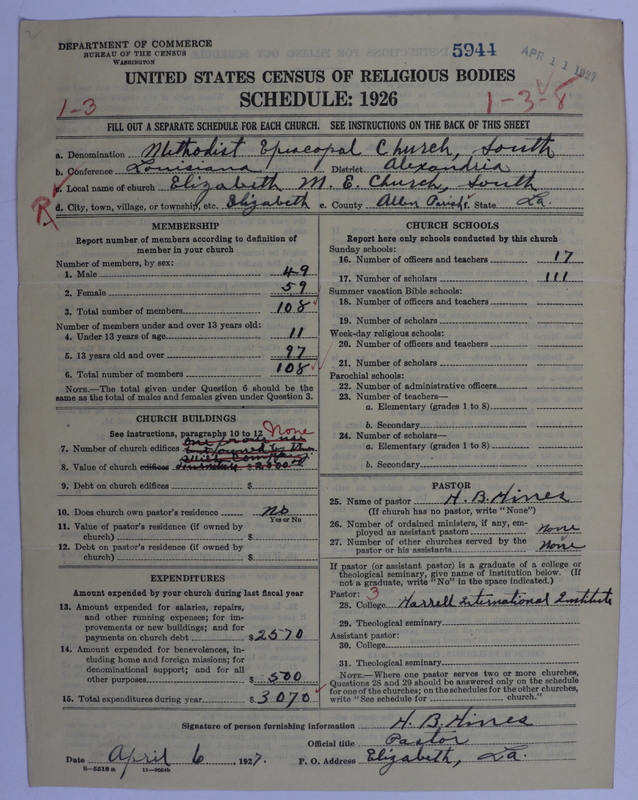 DEPARTMENT OF COMMERCE
BUREAU OF THE CENSUS
WASHINGTON
5944
APR 11 1927
UNITED STATES CENSUS OF RELIGIOUS BODIES
SCHEDULE: 1926
1-3
1-3-8
FILL OUT A SEPARATE SCHEDULE FOR EACH CHURCH. SEE INSTRUCTIONS ON THE BACK OF THIS SHEET
a. Denomination Methodist Episcopal Church, South
b. Conference Louisiana District Alexandria
c. Local name of church Elizabeth M. E. Church, South
R
d. City, town, village, or township, etc. Elizabeth e. County Allen Parish f. State La.
MEMBERSHIP
Report number of members according to definition of
member in your church
Number of members, by sex:
1. Male 49
2. Female 59
3. Total number of members 108
Number of members under and over 13 years old:
4. Under 13 years of age 11
5. 13 years old and over 97
6. Total number of members 108
NOTE.—The total given under Question 6 should be the
same as the total of males and females given under Question 3.
CHURCH BUILDINGS
See instructions, paragraphs 10 to 12 None
7. Number of church edifices
but owned by the
8. Value of church edifices furniture $2500.00
9. Debt on church edifices $
10. Does church own pastor's residence no
Yes or No
11. Value of pastor's residence (if owned by
church) $
12. Debt on pastor's residence (if owned by
church) $
EXPENDITURES
Amount expended by your church during last fiscal year
13. Amount expended for salaries, repairs,
and other running expenses; for im-
provements or new buildings; and for
payments on church debt $2570
14. Amount expended for benevolences, in-
cluding home and foreign missions; for
denominational support; and for all
other purposes $500
15. Total expenditures during year $3070
CHURCH SCHOOLS
Report here only schools conducted by this church
Sunday schools:
16. Number of officers and teachers 17
17. Number of scholars 111
Summer vacation Bible schools:
18. Number of officers and teachers
19. Number of scholars
Week-day religious schools:
20. Number of officers and teachers
21. Number of scholars
Parochial schools:
22. Number of administrative officers
23. Number of teachers—
a. Elementary (grades 1 to 8)
b. Secondary
24. Number of scholars—
a. Elementary (grades 1 to 8)
b. Secondary
PASTOR
25. Name of pastor H. B. Hines
(If church has no pastor, write "None")
26. Number of ordained ministers, if any, em-
ployed as assistant pastors none
27. Number of other churches served by the
pastor or his assistants none
If pastor (or assistant pastor) is a graduate of a college or
theological seminary, give name of institution below. (If
not a graduate, write "No" in the space indicated.)
Pastor: 3
28. College Harrell International Institute
29. Theological seminary
Assistant pastor:
30. College
31. Theological seminary
NOTE.—Where one pastor serves two or more churches,
Questions 28 and 29 should be answered only on the schedule
for one of the churches; on the schedules for the other churches,
write "See schedule for church."
Signature of person furnishing information H. B. Hines
Official title Pastor
Date April 6, 1927. P. O. Address Elizabeth, La.
8-5518 a